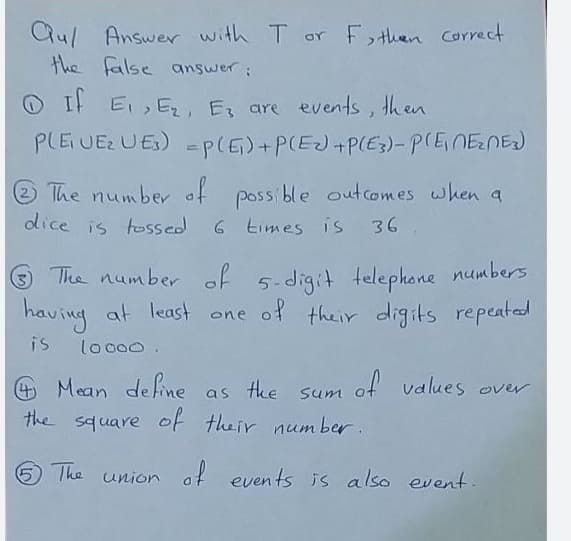 Qu/ Answer with T or F, then correct
the false answer:
① If E₁, E₂, E₃ are events, then
P(E₁ ∪ E₂ ∪ E₃) = P(E₁) + P(E₂) + P(E₃) - P(E₁ ∩ E₂ ∩ E₃)
② The number of possible outcomes when a
dice is tossed 6 times is 36
③ The number of 5-digit telephone numbers
having at least one of their digits repeated
is 10000.
④ Mean define as the sum of values over
the square of their number.
⑤ The union of events is also event.